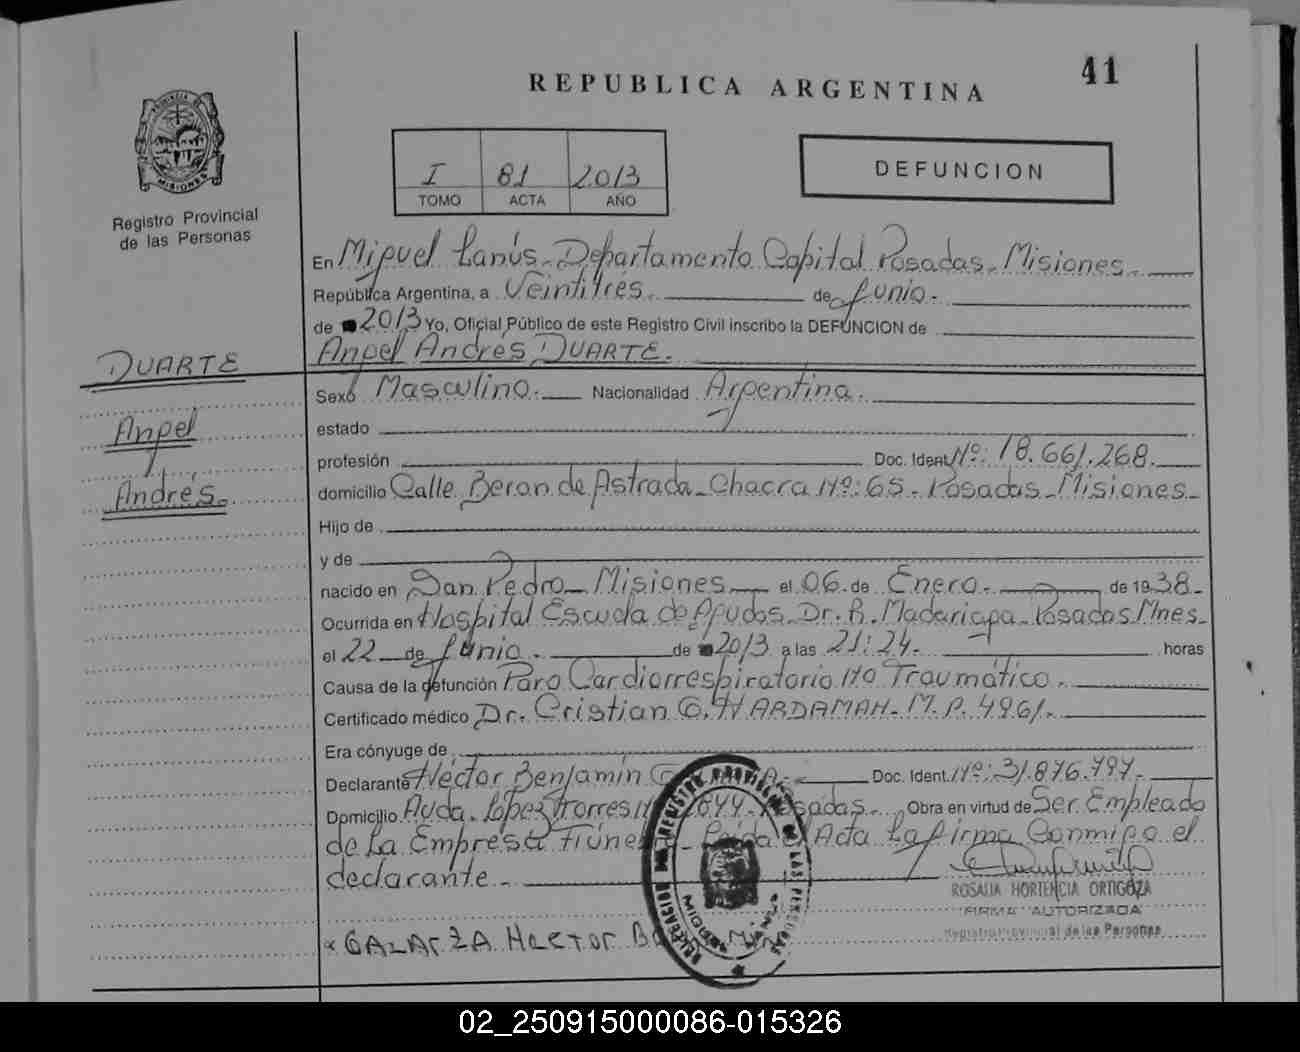 41
REPUBLICA ARGENTINA
PROVINCIA DE MISIONES
Registro Provincial
de las Personas
I 81 2013
TOMO ACTA AÑO
DEFUNCION
En Miguel Lanús - Departamento Capital Posadas - Misiones -
República Argentina, a Veintitrés. de Junio -
de 2013 Yo, Oficial Público de este Registro Civil inscribo la DEFUNCION de
Angel Andrés DUARTE.
DUARTE
Angel
Andrés.
Sexo Masculino. Nacionalidad Argentina.
estado
profesión Doc. Ident. Nº: 18.661.268.
domicilio Calle Beron de Astrada - Chacra Nº: 65 - Posadas - Misiones -
Hijo de
y de
nacido en San Pedro - Misiones el 06 de Enero - de 1938 -
Ocurrida en Hospital Escuela de Agudos Dr. R. Madariaga - Posadas Mnes -
el 22 de Junio - de 2013 a las 21:24 - horas
Causa de la defunción Paro Cardiorrespiratorio No Traumático -
Certificado médico Dr. Cristian G. WARDAMAH - M.P. 4961 -
Era cónyuge de
Declarante Héctor Benjamín Doc. Ident. Nº: 31.876.797 -
Domicilio Avda. López Torres Posadas - Obra en virtud de Ser Empleado
de La Empresa Fúnebre - el Acta La firma Conmigo el
declarante -
ROSALIA HORTENCIA ORTIGOZA
FIRMA AUTORIZADA
Registro Provincial de las Personas
DELEGACION DEL REGISTRO PROVINCIAL DE LAS PERSONAS
GALARZA HECTOR
02_250915000086-015326